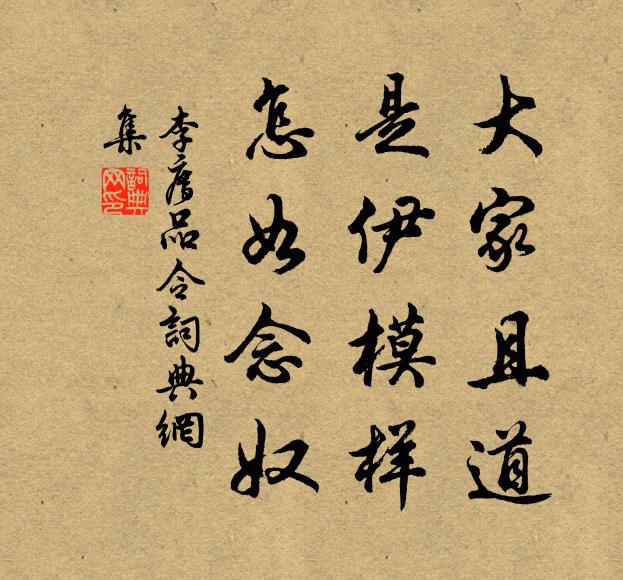 大家且道
是伊模样
怎如念奴
李廌品令詞典網
集
詞典
网印